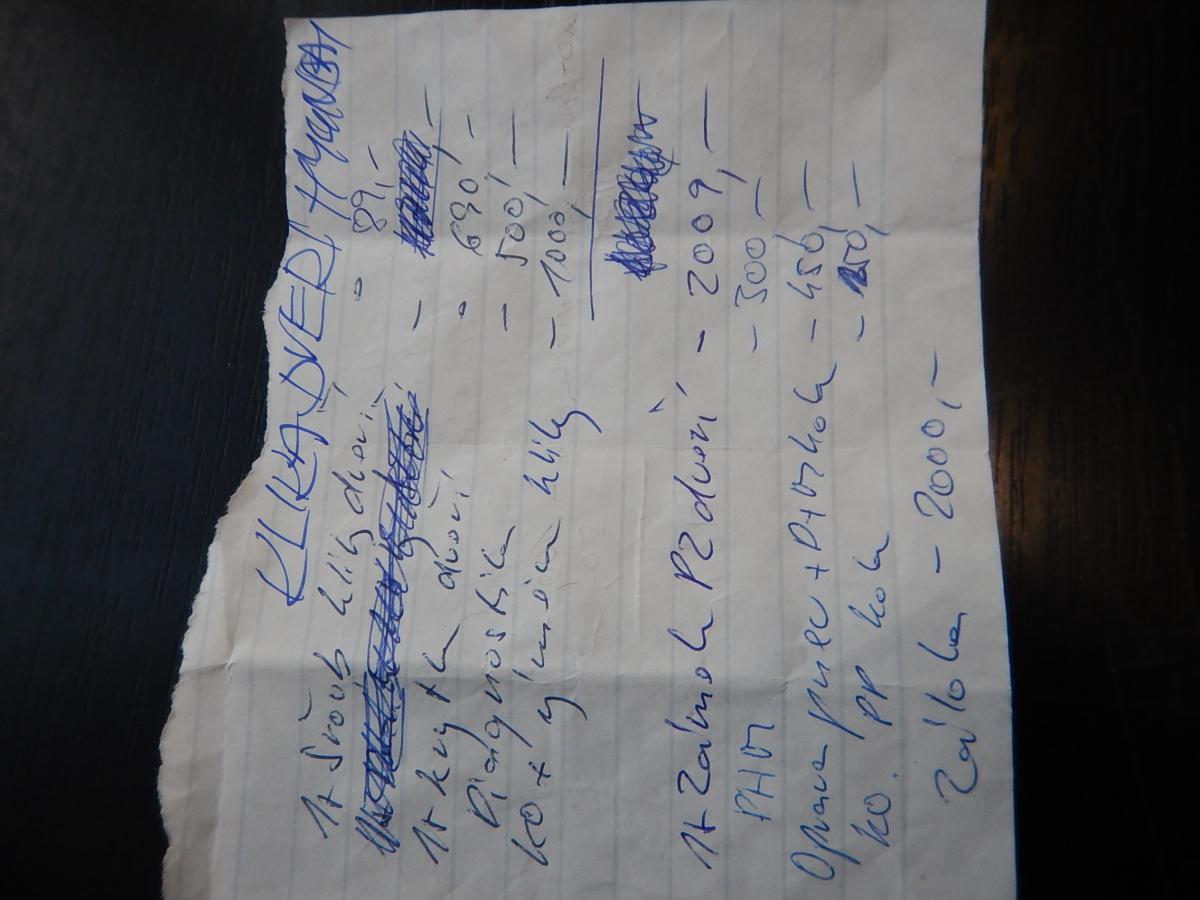 KLIKA DVEŘÍ HYUNDAI
1x šroub kliky dveří - 89,-
1x krytka dveří - 690,-
Diagnostika - 500,-
KO + výměna kliky - 1000,-
1x Zámek PZ dveří - 2009,-
PHM - 300,-
Oprava pneu + Přezutí kola - 450,-
KO. PP kola - 250,-
Záloha - 2000,-